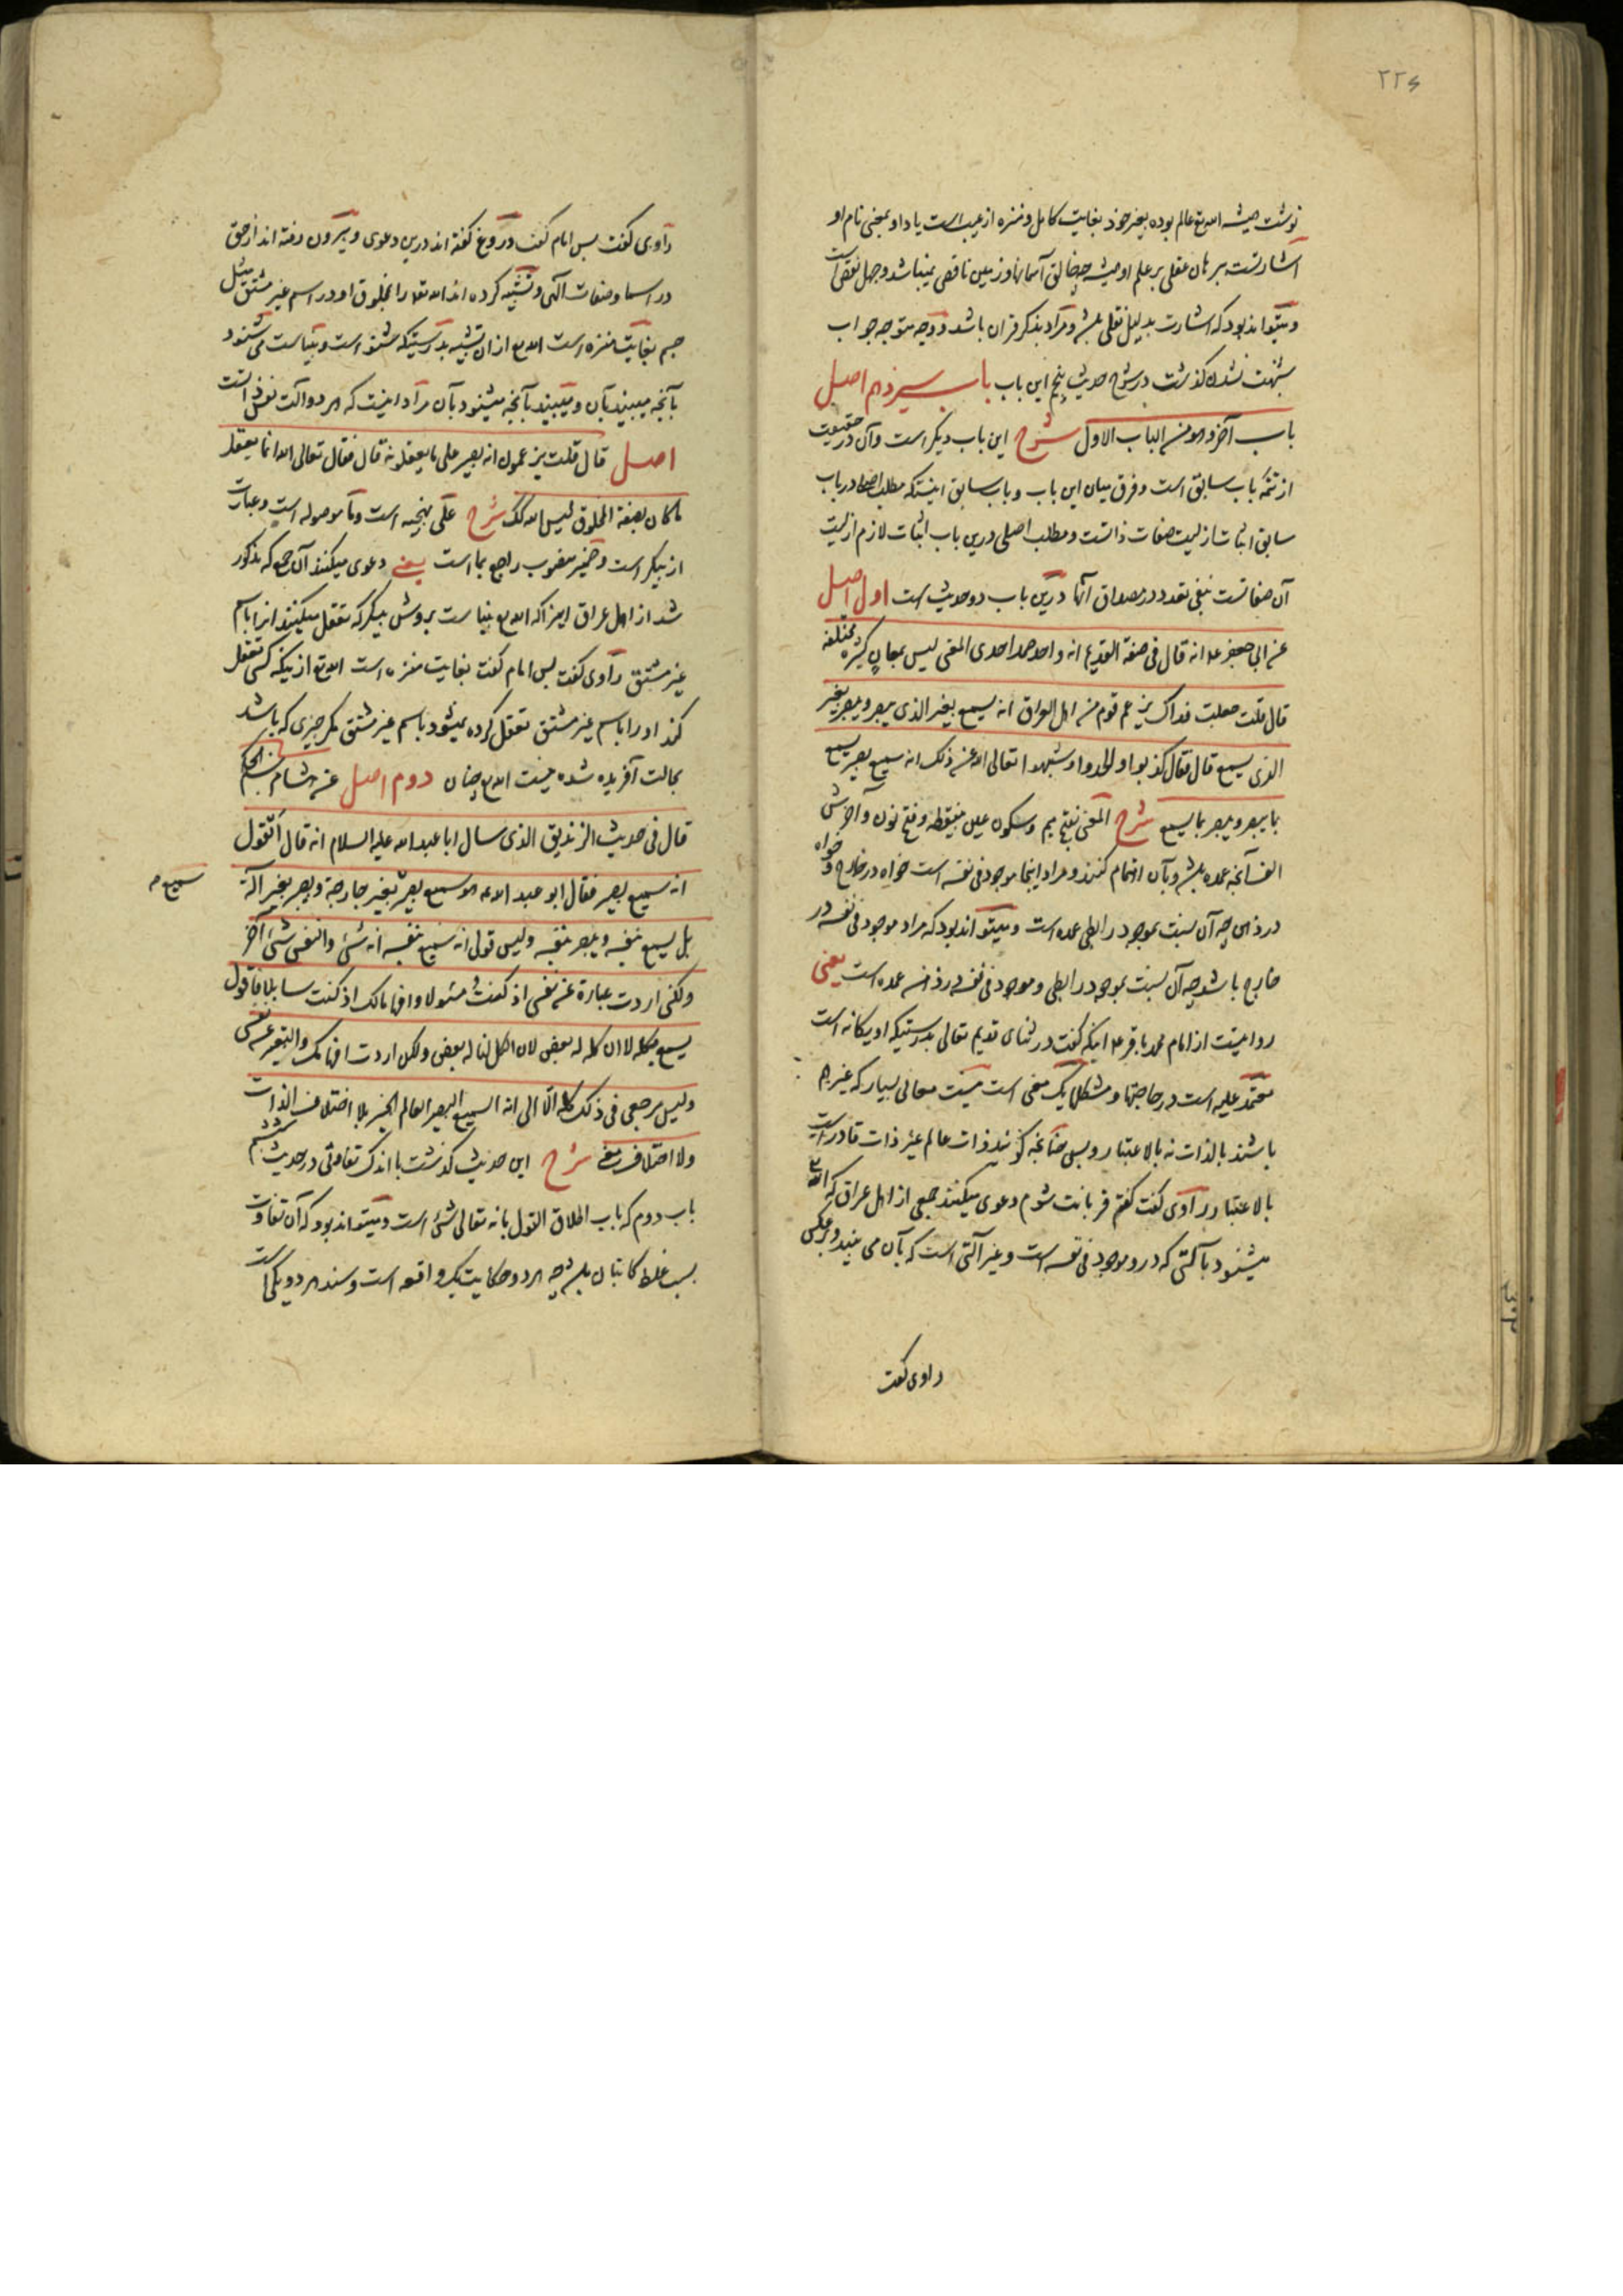 ۲۲۶
نوشت همیشه الله تع عالم بوده بغیر خود بغایت کامل و منزه از عیب است یا داو بمعنی نام او
اشارتست ببرهان عقلی بر علم او همیشه چه خالق آسمانها و زمین ناقص نمیباشد و جهل نقص است
و میتواند بود که اشارت بدلیل نقلی باشد و مراد بذکر قرآن باشد و وجه متوجه جواب
شبهت نشدن گذشت در شرح حدیث پنجم این باب باب سیزدهم اصل
باب آخر و هو من الباب الاول شرح این باب دیگر است و آن در حقیقت
از تتمه باب سابق است و فرق میان این باب و باب سابق اینستکه مطلب اصلی در باب
سابق اثبات ازلیت صفات ذاتست و مطلب اصلی درین باب اثبات لازم ازلیت
آن صفاتست بنفی تعدد در مصداق آنها درین باب دو حدیث است اول اصل
عن ابی جعفر ع انه قال فی صفة القدیم انه واحد صمد احدی المعنی لیس بمعان کثیرة مختلفة
قال قلت جعلت فداک یزعم قوم من اهل العراق انه یسمع بغیر الذی یبصر و یبصر بغیر
الذی یسمع قال فقال کذبوا و الحدوا و شبهوا تعالی الله عن ذلک انه سمیع بصیر یسمع
بما یبصر و یبصر بما یسمع شرح المعنی بفتح میم و سکون عین بینقطه و فتح نون و آخرش
الف آنچه عمده باشد و بآن اهتمام کنند و مراد اینجا موجود فی نفسه است خواه در خارج و خواه
در ذهن چه آن نسبت بموجود رابطی عمده است و میتواند بود که مراد موجود فی نفسه در
خارج باشد چه آن نسبت بموجود رابطی و موجود فی نفسه در ذهن عمده است یعنی
روایتست از امام محمد باقر ع اینکه گفت در ثنای قدیم تعالی بدرستیکه او یگانه است
معتمد علیه است در حاجتها و مشکلها یک معنی است نیست معانی بسیار که غیر هم
باشند بالذات نه بالاعتبار و بس چنانچه گویند ذات عالم غیر ذات قادر است
بالاعتبار راوی گفت گفتم قربانت شوم دعوی میکنند جمعی از اهل عراق که الله تع
میشنود بآلتی که در و موجود فی نفسه است و غیر آلتی است که بآن می بیند و برعکس
راوی گفت
راوی گفت پس امام گفت دروغ گفته اند درین دعوی و بیرون رفته اند از حق
در اسما و صفات الهی و تشبیه کرده اند الله تعالی را بمخلوق او در اسم غیر مشتق مثل
جسم بغایت منزه است الله تع از ان تشبیه بدرستیکه شنوا است و بیناست می شنود
بآنچه میبیند بآن و میبیند بآنچه میشنود بآن مراد اینست که هر دو آلت نفس ذاتست
اصل قال قلت یزعمون انه بصیر علی ما یعقلونه قال فقال تعالی الله انما یعقل
ما کان بصفة المخلوق لیس الله کذلک شرح علی نهجیه است و ما موصوله است و عبارت
از پیکر است و ضمیر منصوب راجع بما است یعنی دعوی میکنند آن جمع که مذکور
شد از اهل عراق اینرا که الله تع بینا است بروش پیکر که تعقل میکنند انرا باسم
غیر مشتق راوی گفت پس امام گفت بغایت منزه است الله تع از اینکه کسی تعقل
کند او را باسم غیر مشتق تعقل کرده نمیشود باسم غیر مشتق مگر چیزی که باشد
بحالت آفریده شده نیست الله تع چنان دوم اصل عن هشام بن الحکم
قال فی حدیث الزندیق الذی سال ابا عبد الله علیه السلام انه قال أتقول
انه سمیع بصیر فقال ابو عبد الله ع هو سمیع بصیر بغیر جارحة و بصیر بغیر آلة
سمیع صح
بل یسمع بنفسه و یبصر بنفسه و لیس قولی انه سمیع بنفسه انه شیء و النفس شیء آخر
و لکنی اردت عبارة عن نفسی اذ کنت مسئولا و افهامالک اذ کنت سایلا فاقول
یسمع بکله لا ان کله له بعض لان الکل لنا له بعض و لکن اردت افهامک و التعبیر عن نفسی
و لیس مرجعی فی ذلک کله الا الی انه السمیع البصیر العالم الخبیر بلا اختلاف الذات
و لا اختلاف معنی شرح این حدیث گذشت با اندک تفاوتی در حدیث ششم
باب دوم که باب اطلاق القول بانه تعالی شیء است و میتواند بود که آن تفاوت
بسبب غلط کاتبان باشد چه هر دو حکایت یک واقعه است و سند هر دو یکی است